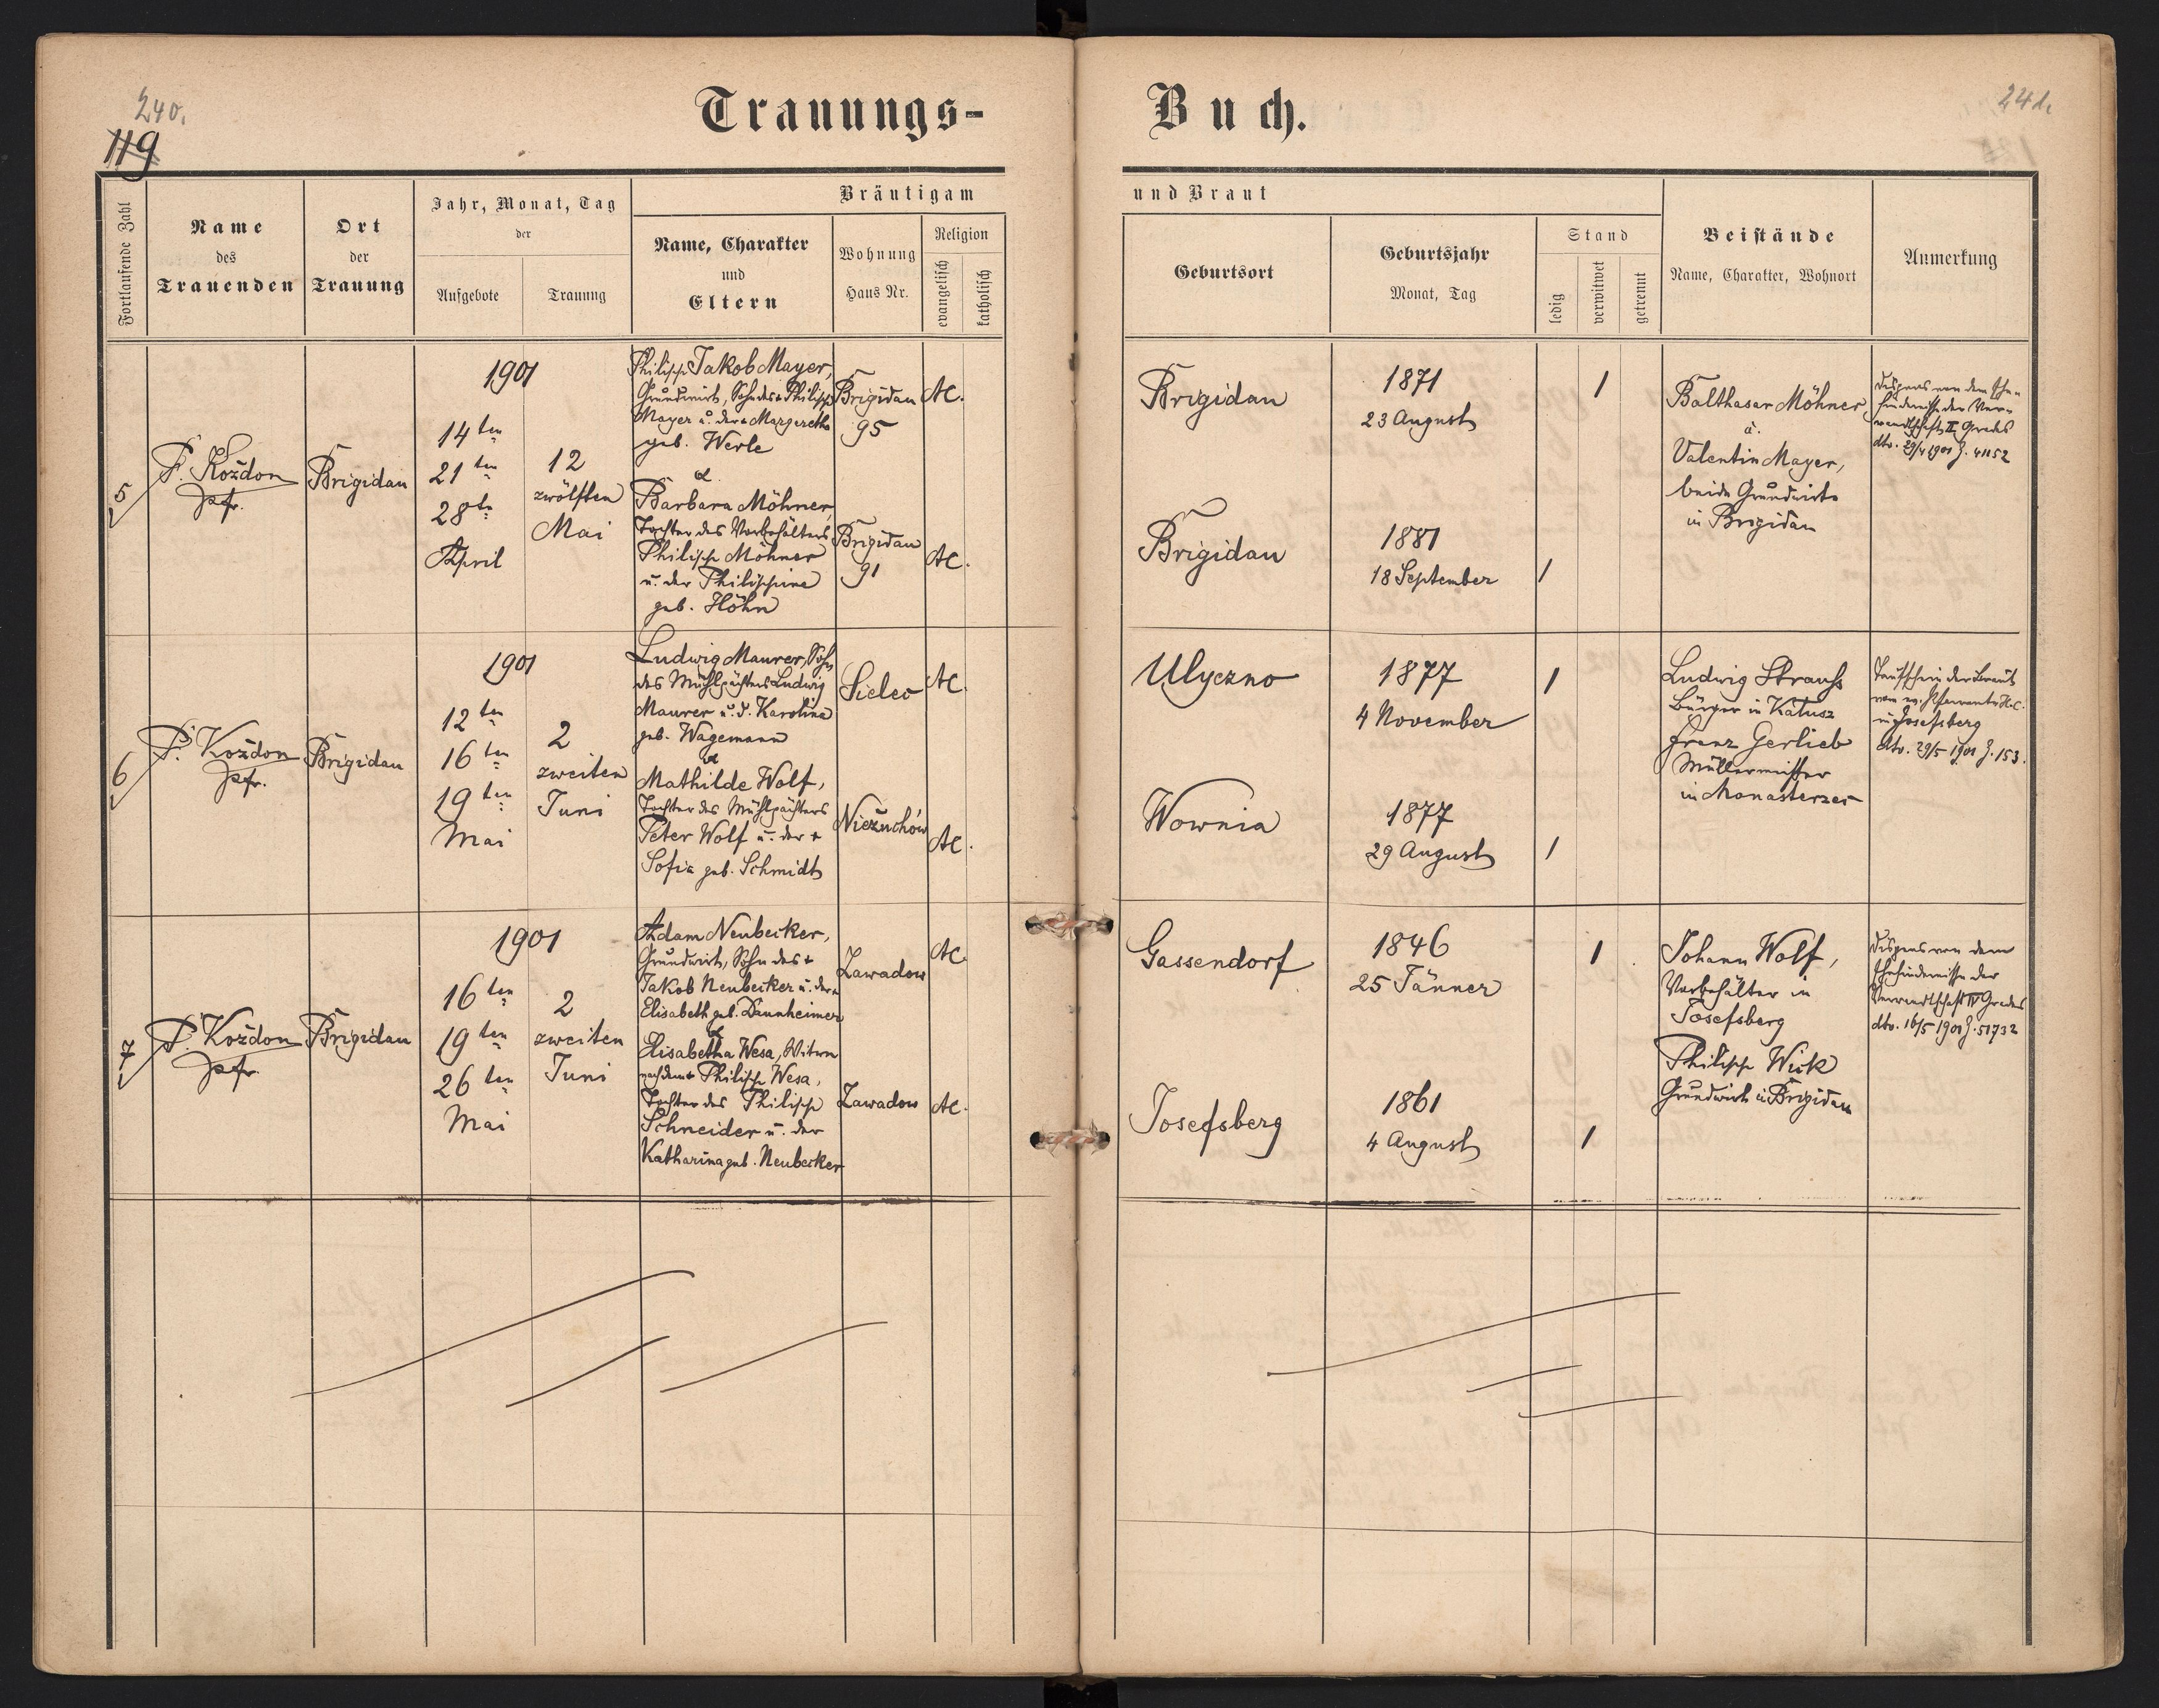 240.
119
Trauungs-
Buch.
241.
Fortlaufende Zahl
Name
des
Trauenden
Ort
der
Trauung
Jahr, Monat, Tag
der
Aufgebote
Trauung
Bräutigam
Name, Charakter
und
Eltern
Wohnung
Haus Nr.
Religion
evangelisch
katholisch
und Braut
Geburtsort
Geburtsjahr
Monat, Tag
Stand
ledig
verwitwet
getrennt
Beistände
Name, Charakter, Wohnort
Anmerkung
5
P. Kożdon
Pfr.
Brigidau
1901
14ten
21ten
28te
April
12
zwölften
Mai
Philipp Jakob Mayer,
Grundwirt, Sohn des + Philipp
Mayer u. der + Margarethe
geb. Werle
&
Barbara Möhner
Tochter des Vorbehälters
Philipp Möhner
u. der Philippine
geb. Höhn
Brigidau
95
AC.
Brigidau
91
AC.
Brigidau
1871
23 August
1
Brigidau
1881
18 September
1
Balthasar Möhner
u.
Valentin Mayer,
beide Grundwirte
in Brigidau
Dispens von dem Ehe-
hindernisse der Ver-
wandtschaft II Grades
dto. 29/4 1901 Z. 41152
6
P. Kożdon
Pfr.
Brigidau
1901
12ten
16ten
19ten
Mai
2
zweiten
Juni
Ludwig Maurer, Sohn
des Mühlpächters Ludwig
Maurer u. d. Karolina
geb. Wagemann
&
Mathilde Wolf,
Tochter des Mühlpächters
Peter Wolf u. der +
Sofia geb. Schmidt
Sielec
AC.
Nieżuchów
AC.
Ulyczno
1877
4 November
1
Wownia
1877
29 August
1
Ludwig Strauss
Bürger in Kałusz
Franz Gerlieb
Müllermeister
in Monasterzec
Taufschein der Braut
vom ev. Pfarramte H.C.
in Josefsberg
dto. 29/5 1901 Z. 153.
7
P. Kożdon
Pfr.
Brigidau
1901
16ten
19ten
26ten
Mai
2
zweiten
Juni
Adam Neubecker,
Grundwirt, Sohn des +
Jakob Neubecker u. der +
Elisabeth geb. Daunheimer
&
Elisabetha Wesa, Witwe
nach dem + Philipp Wesa,
Tochter des Philipp
Schneider u. der
Katharina geb. Neubecker
Zawadow
AC.
Zawadow
AC.
Gassendorf
1846
25 Jänner
1
Josefsberg
1861
4 August
1
Johann Wolf,
Vorbehälter in
Josefsberg
Philipp Wick
Grundwirt in Brigidau
Dispens von dem
Ehehindernisse der
Verwandtschaft IV Grades
dto. 16/5 1901 Z. 51732